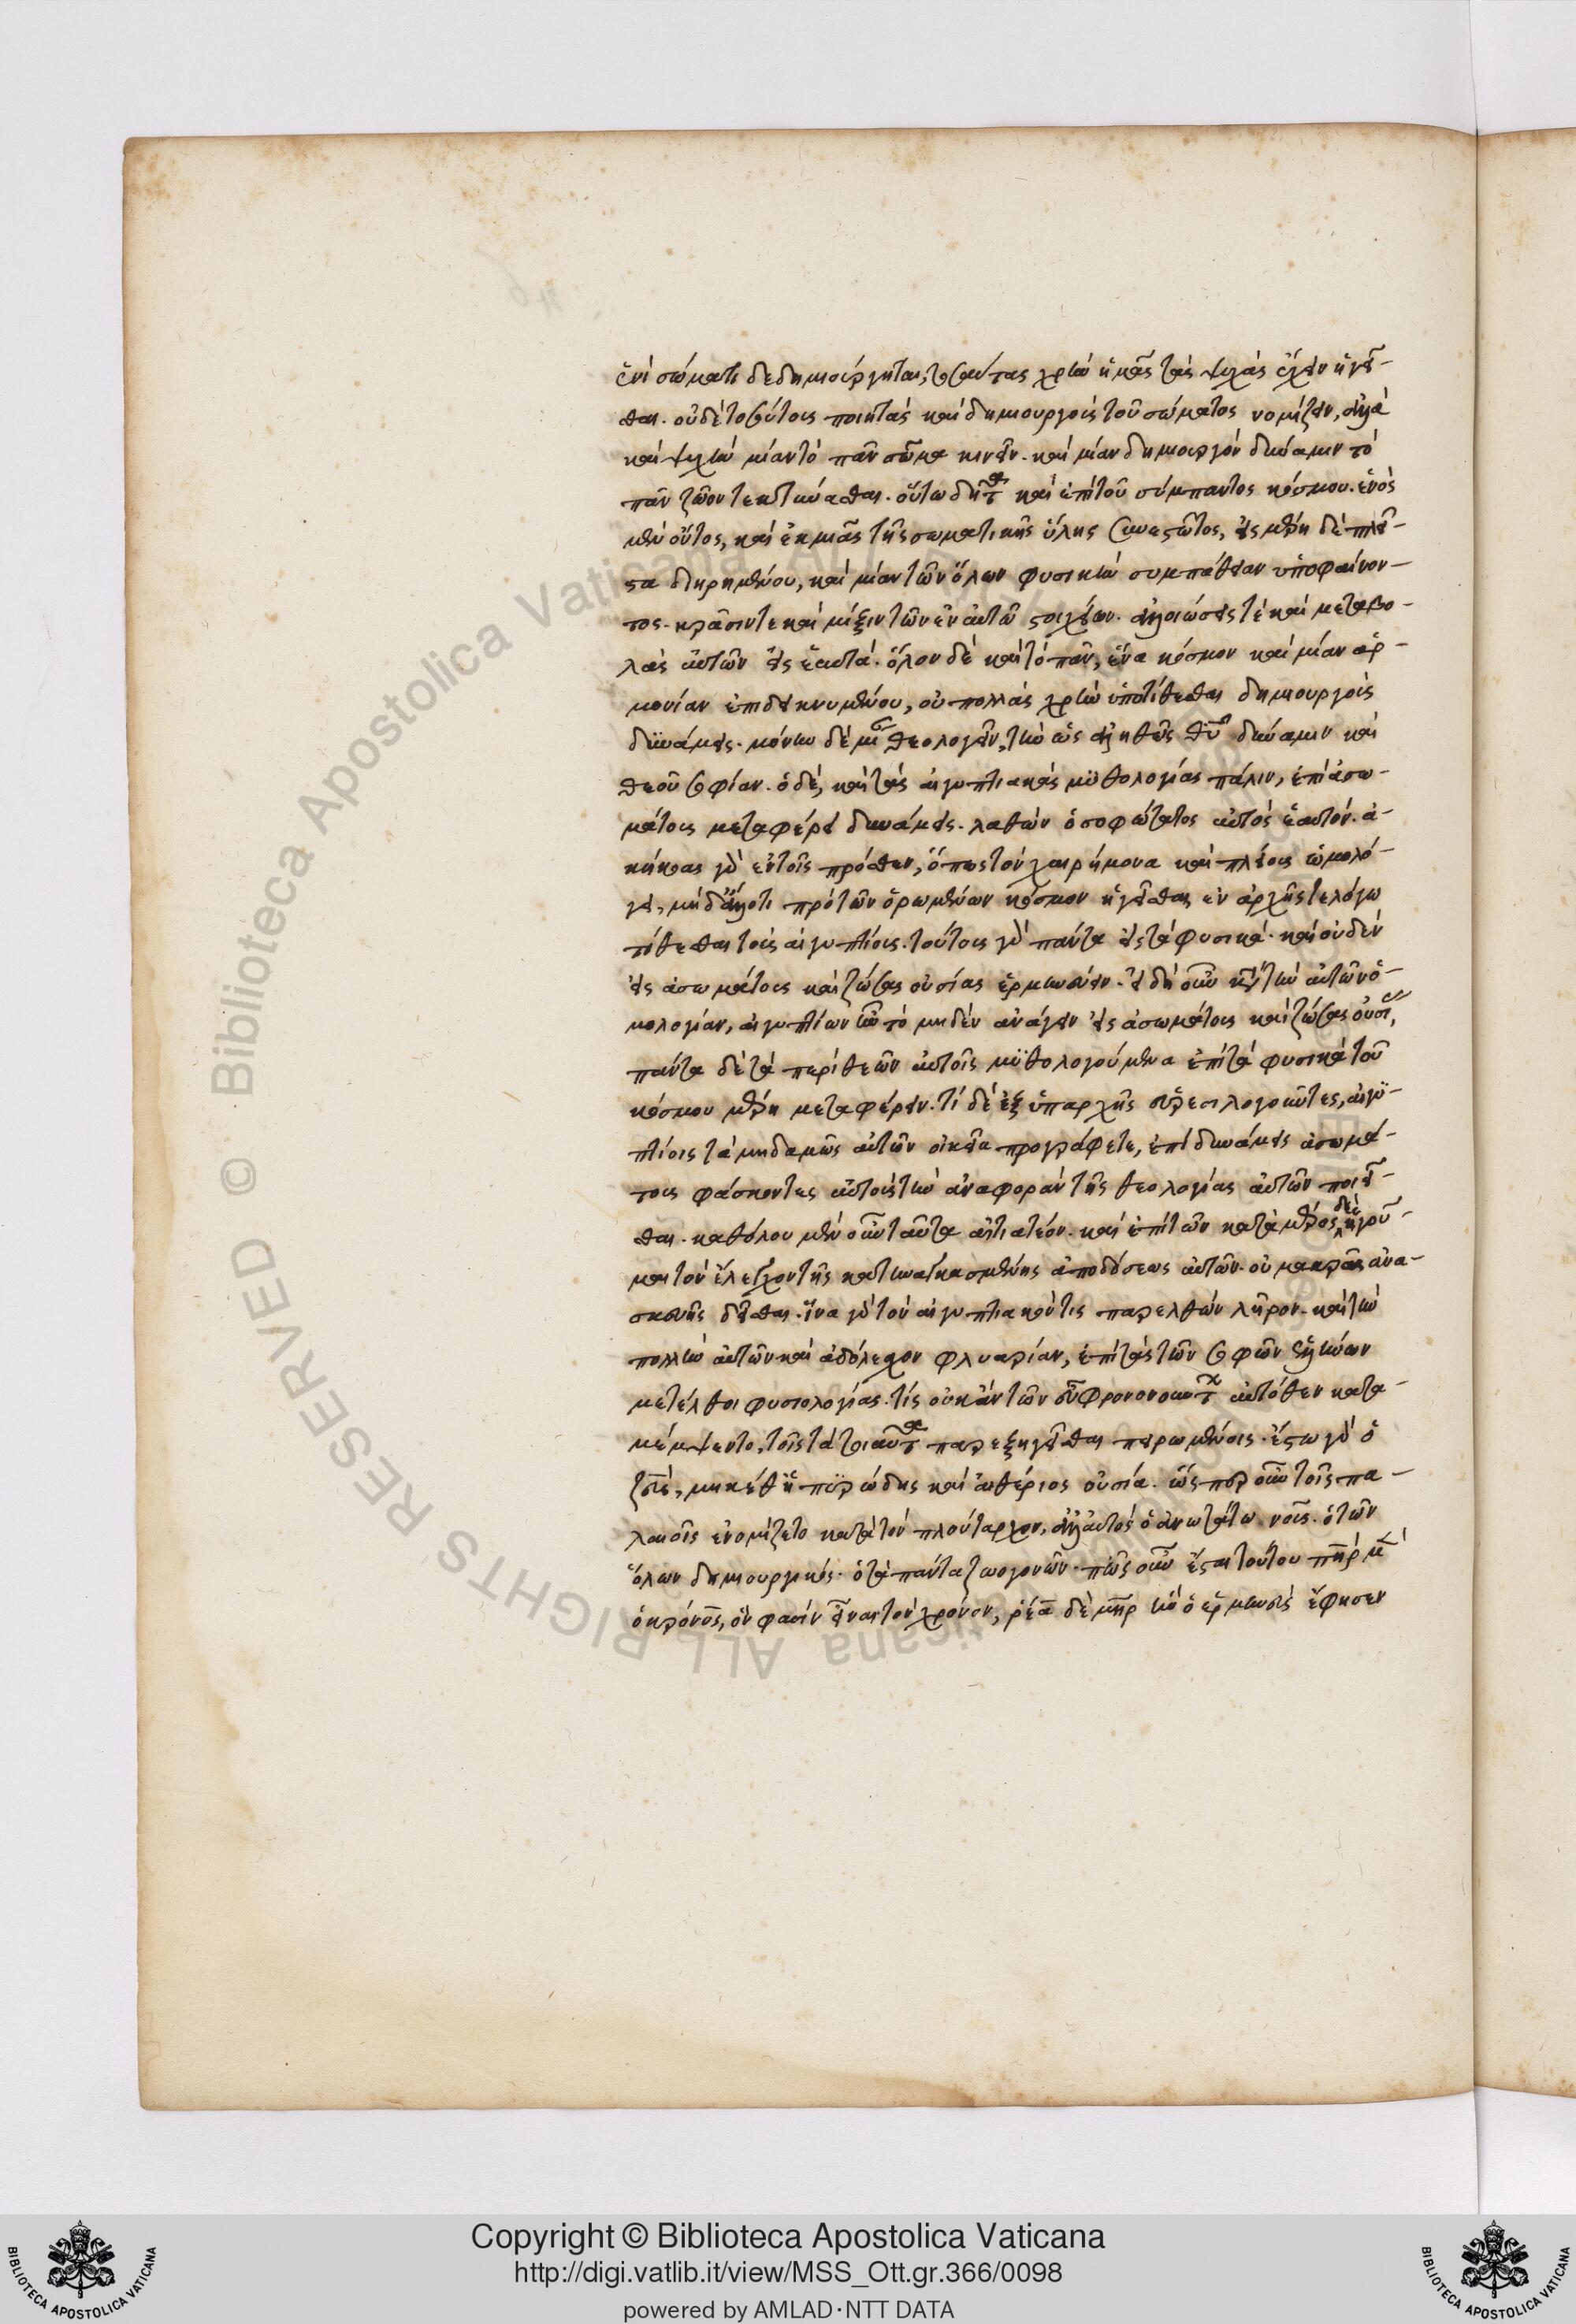 ἑνὶ σώματι δεδημιούργηται, τοσαύτας χρὴ ἡμᾶς τὰς ψυχὰς ἔχειν ἡγεῖ-
σθαι. οὐδὲ τοσούτους ποιητὰς καὶ δημιουργοὺς τοῦ σώματος νομίζειν, ἀλλὰ
καὶ ψυχὴν μίαν τὸ πᾶν σῶμα κινεῖν. καὶ μίαν δημιουργὸν δύναμιν τὸ
πᾶν ζῶον τεκτήνασθαι. οὕτω δῆτα καὶ ἐπὶ τοῦ σύμπαντος κόσμου. ἑνὸς
μὲν ὄντος, καὶ ἐκ μιᾶς τῆς σωματικῆς ὕλης συνεστῶτος, εἰς μέρη δὲ πλεῖ-
στα διηρημένου, καὶ μίαν τῶν ὅλων φυσικὴν συμπάθειαν ὑποφαίνον-
τος. κρᾶσίν τε καὶ μίξιν τῶν ἐν αὐτῶ στοιχείων. ἀλλοιώσεις τὲ καὶ μεταβο-
λὰς αὐτῶν εἰς ἑαυτά. ὅλον δὲ καὶ τὸ πᾶν, ἕνα κόσμον καὶ μίαν ἁρ-
μονίαν ἐπιδεικνυμένου, οὐ πολλὰς χρὴ ὑποτίθεσθαι δημιουργοὺς
δυνάμεις. μόνην δὲ μίαν θεολογεῖν, τὴν ὡς ἀληθῶς θῦ δύναμιν καὶ
θεοῦ σοφίαν. ὁ δὲ, καὶ τὰς αἰγυπτιακὰς μυθολογίας πάλιν, ἐπὶ ἀσω-
μάτους μεταφέρει δυνάμεις. λαθὼν ὁ σοφώτατος αὐτὸς ἑαυτόν. ἀ-
κήκοας γὰρ ἐν τοῖς πρόσθεν, ὅπως τὸν χαιρήμονα καὶ πλείους ὡμολό-
γει, μηδ' ἄλλό τι πρὸ τῶν ὁρωμένων κόσμον ἡγεῖσθαι ἐν ἀρχῆς τε λόγω
τίθεσθαι τοὺς αἰγυπτίους. τούτοις γὰρ πάντα εἰς τὰ φυσικά. καὶ οὐδὲν
εἰς ἀσωμάτους καὶ ζώσας οὐσίας ἑρμηνεύειν. εἰ δὴ οὖν κατὰ τὴν αὐτῶν ὁ-
μολογίαν, αἰγυπτίων ἦν τὸ μηδὲν ἀνάγειν εἰς ἀσωμάτους καὶ ζώσας οὐσίας,
πάντα δὲ τὰ περὶ θεῶν αὐτοῖς μυθολογούμενα ἐπὶ τὰ φυσικὰ τοῦ
κόσμου μέρη μεταφέρειν. τί δὲ ἐξ ὑπαρχῆς εὑρεσιλογοῦντες, αἰγυ-
πτίοις τὰ μηδαμῶς αὐτῶν οἰκεῖα προγράφετε, ἐπὶ δυνάμεις ἀσωμά-
τους φάσκοντες αὐτοὺς τὴν ἀναφορὰν τῆς θεολογίας αὐτῶν ποιεῖ-
σθαι. καθόλου μὲν οὖν ταῦτα αἰτιατέον. καὶ ἐπὶ τῶν κατὰ μέρος δὲ ἡγοῦ-
μαι τὸν ἔλεγχον τῆς κατηναγκασμένης ἀποδόσεως αὐτῶν. οὐ μακρᾶς ἀνα-
σκευῆς δεῖσθαι. ἵνα γὰρ τὸν αἰγυπτιακόν τις παρελθὼν λῆρον. καὶ τὴν
πολλὴν αὐτῶν καὶ ἀδόλεσχον φλυαρίαν, ἐπὶ τὰς τῶν σοφῶν ἑλλήνων
μετέλθοι φυσιολογίας. τίς οὐκ ἂν τῶν εὖ φρονούντων αὐτόθεν κατα-
μέμψαιντο, τοῖς τὰ τοιαῦτα παρεξηγεῖσθαι πειρωμένοις. ἔστω γὰρ ὁ
ζεὺς, μηκέθ' ἡ πυρώδης καὶ αἰθέριος οὐσία. ὥσπερ οὖν τοῖς πα-
λαιοῖς ἐνομίζετο κατὰ τὸν πλούταρχον, ἀλλ' αὐτὸς ὁ ἀνωτάτω νοῦς. ὁ τῶν
ὅλων δημιουργικός. ὁ τὰ πάντα ζωογονῶν. πῶς οὖν ἔσται τούτου πὴρ μὲν
ὁ κρόνος, ὅν φασιν εἶναι τὸν χρόνον, ῥέα δὲ μῆρ ἣν ὁ ἑρμηνεὺς ἔφησεν
Copyright © Biblioteca Apostolica Vaticana
http://digi.vatlib.it/view/MSS_Ott.gr.366/0098
powered by AMLAD·NTT DATA